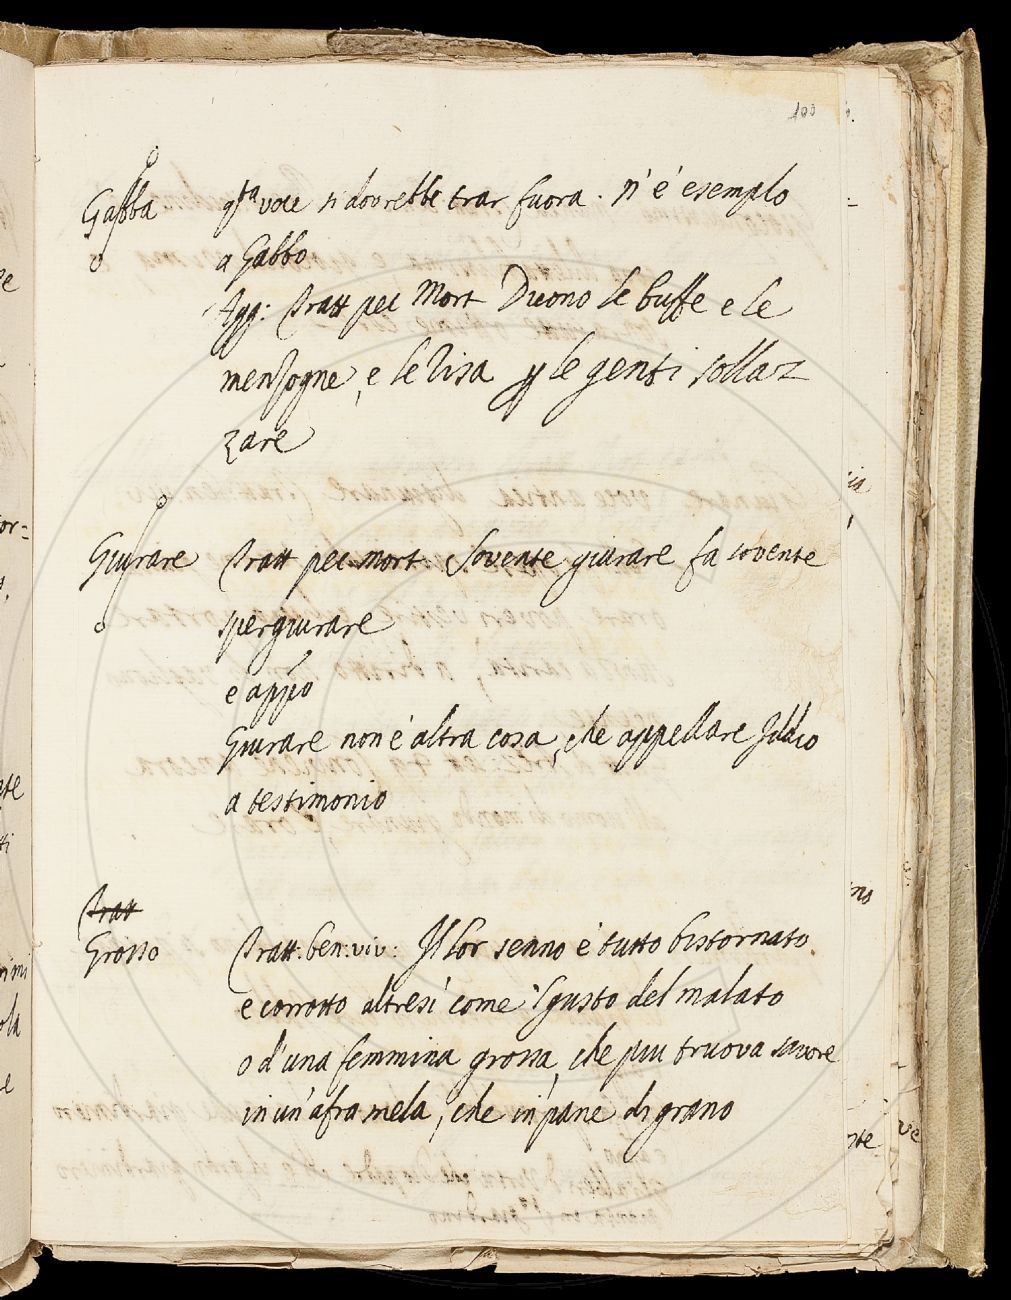 100
Gabba qsta voce si dovrebbe trar fuora. n'é esempio
a Gabbo
Agg: Tratt pec Mort Dicono le buffe e le
menzogne, e le risa p le genti sollaz
zare
Giurare Tratt pec mort Sovente giurare fa sovente
spergiurare
e appo
Giurare non é altra cosa, che appellare Iddio
a testimonio
Tratt
Grosso Tratt. ben: viv: Il lor senno é tutto bistornato
e corrotto altresí come 'l gusto del malato
o d'una femmina grossa, che piu truova savore
in un'afra mela, che in pane di grano